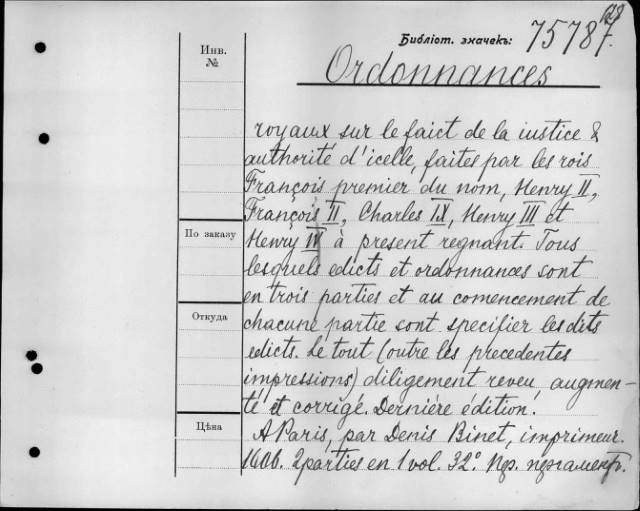 Библіот. значекъ: 75787.
Инв.
№
Ordonnances
royaux sur le faict de la iustice &
authorité d'icelle, faites par les rois
François premier du nom, Henry II,
François II, Charles IX, Henry III et
По заказу
Henry IV à present regnant. Tous
lesquels edicts et ordonnances sont
en trois parties et au comencement de
Откуда
chacune partie sont specifier les dits
edicts. Le tout (outre les precedentes
impressions) diligement reveu, augmen-
té et corrigé. Derniére édition.
Цѣна
A Paris, par Denis Binet, imprimeur.
1606. 2 parties en 1 vol. 32°. Пер. пергамент.